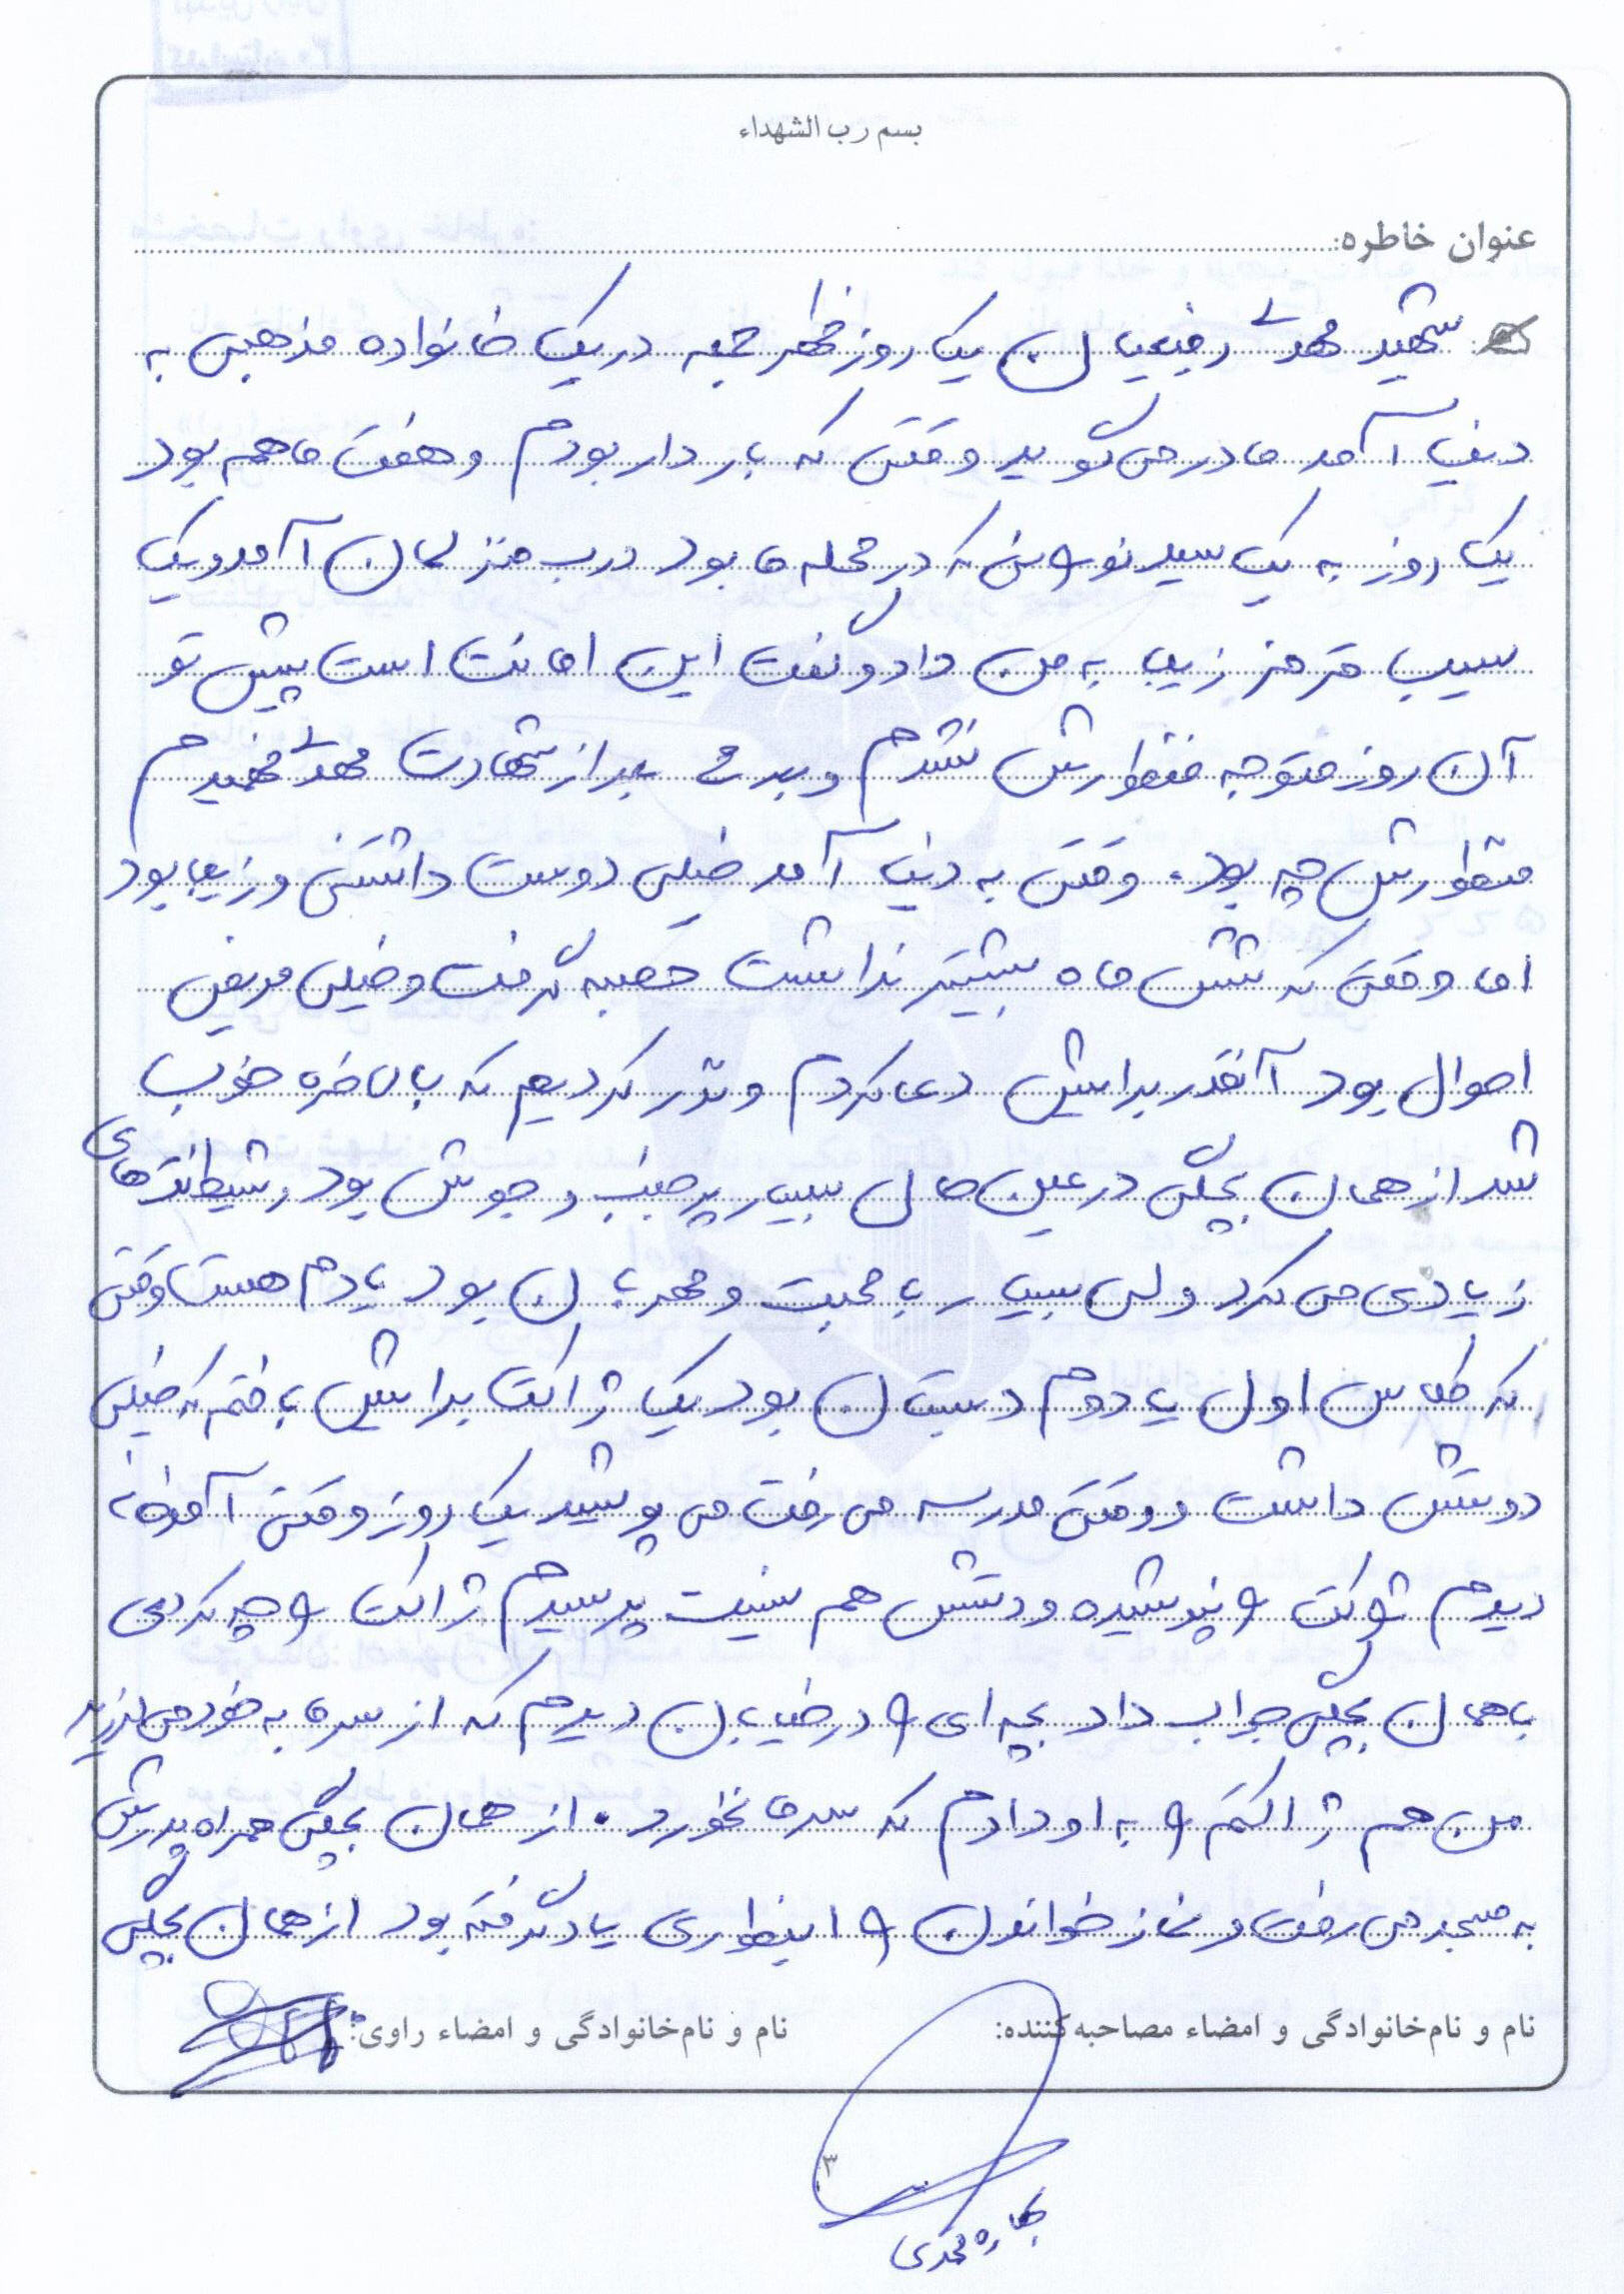 بسم رب الشهداء
عنوان خاطره:
شهید مهدی رفیعیان یک روز ظهر جمعه در یک خانواده مذهبی به
دنیا آمد مادر می گوید وقتی که باردار بودم و هفت ماهم بود
یک روز به یک سید نورانی که در محله ما بود درب منزلمان آمد و یک
سیب قرمز زیبا به من داد و گفت این امانت است پیش تو
آن روز متوجه منظورش نشدم و بعد از شهادت مهدی فهمیدم
منظورش چه بود. وقتی به دنیا آمد خیلی دوست داشتنی و زیبا بود
اما وقتی که شش ماه بیشتر نداشت حصبه گرفت و خیلی مریض
احوال بود آنقدر برایش دعا کردم و نذر کردیم که بالاخره خوب
شد از همان بچگی در عین حال بسیار پر جنب و جوش بود و شیطانت های
زیادی می کرد ولی بسیار با محبت و مهربان بود یادم هست وقتی
که کلاس اول یا دوم دبستان بود یک ژاکت برایش بافتم که خیلی
دوستش داشت و وقتی مدرسه می رفت می پوشید یک روز وقتی آمد خانه
دیدم ژاکت و نپوشیده و دستش هم نیست پرسیدم ژاکت و چه کردی
با همان بچگی جواب داد بچه ای و در خیابان دیدم که از سرما به خود می لرزید
من هم ژاکتم و به او دادم که سرما نخورد. از همان بچگی همراه پدرش
به مسجد می رفت و نماز خواندن و اینطوری یاد گرفته بود از همان بچگی
نام و نام‌خانوادگی و امضاء مصاحبه‌کننده:
نام و نام‌خانوادگی و امضاء راوی:
۳
بهاره محمدی